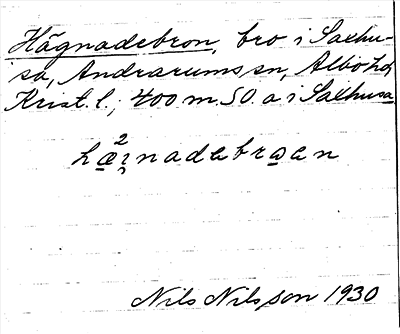 Hägnadebron, bro i Saxhu-
sa, Andrarums sn, Albo hd,
Krist. l.; 400 m. SO. a i Saxhusa
hæ²i̯nadebroen
Nils Nilsson 1930